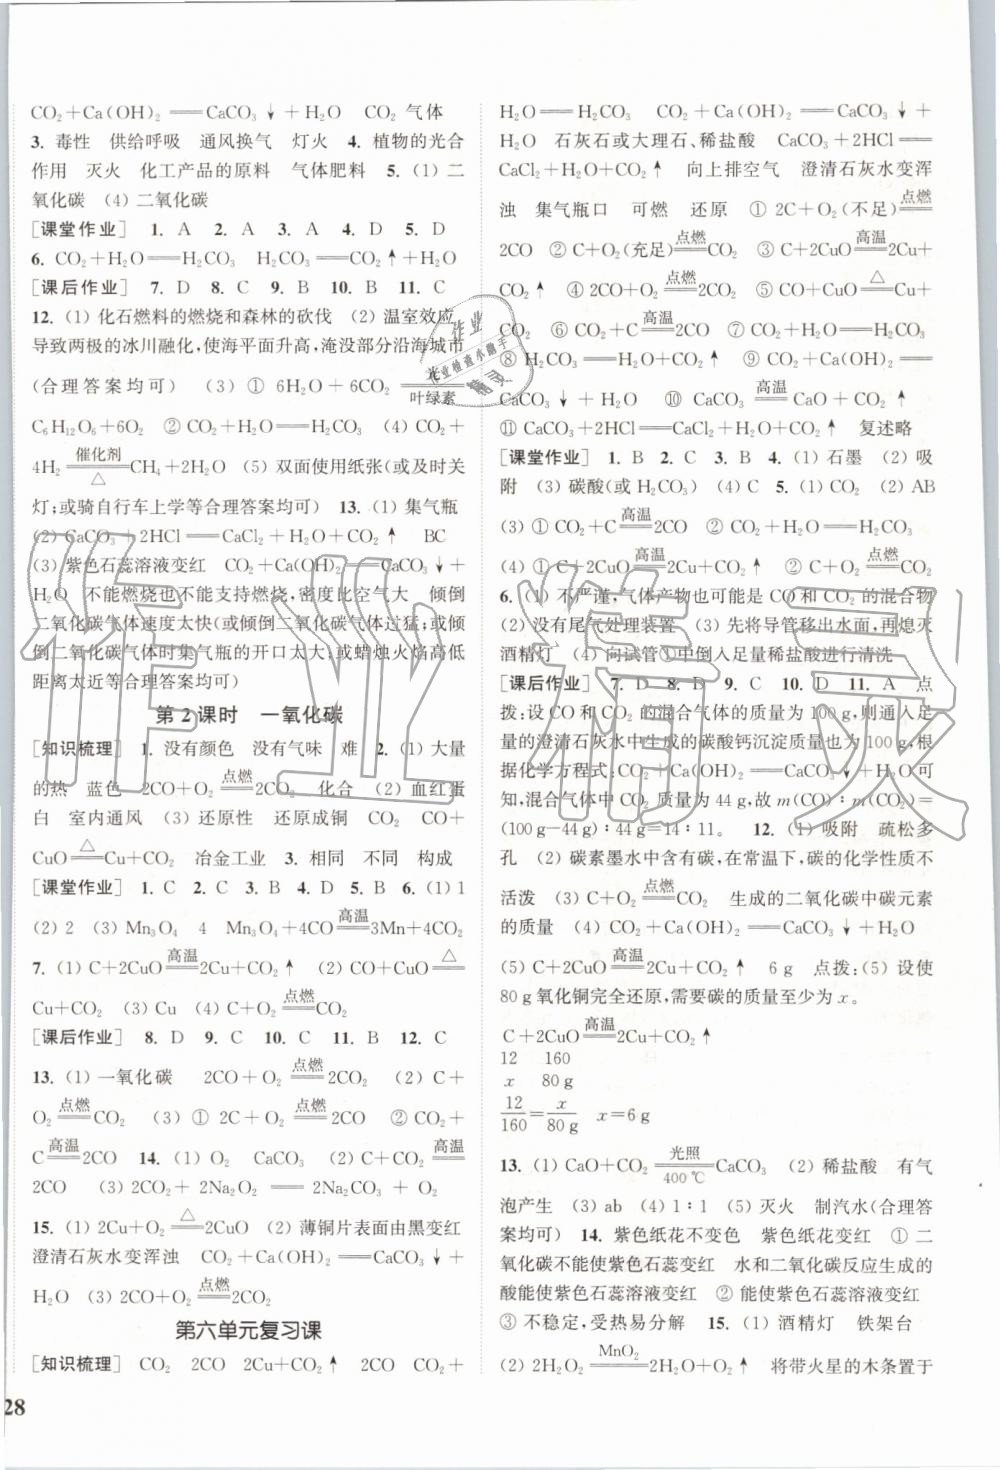 CO₂+Ca(OH)₂══CaCO₃↓+H₂O CO₂ 气体
3. 毒性 供给呼吸 通风换气 灯火 4. 植物的光合
作用 灭火 化工产品的原料 气体肥料 5. (1) 二
氧化碳 (4) 二氧化碳
[课堂作业] 1. A 2. A 3. A 4. D 5. D
6. CO₂+H₂O══H₂CO₃ H₂CO₃══CO₂↑+H₂O
[课后作业] 7. D 8. C 9. B 10. B 11. C
12. (1) 化石燃料的燃烧和森林的砍伐 (2) 温室效应
导致两极的冰川融化,使海平面升高,淹没部分沿海城市
(合理答案均可) (3) ① 6H₂O+6CO₂ ══
叶绿素
C₆H₁₂O₆+6O₂ ② CO₂+H₂O══H₂CO₃ (4) CO₂+
4H₂ 催化剂══△ CH₄+2H₂O (5) 双面使用纸张(或及时关
灯;或骑自行车上学等合理答案均可) 13. (1) 集气瓶
(2) CaCO₃+2HCl══CaCl₂+H₂O+CO₂↑ BC
(3) 紫色石蕊溶液变红 CO₂+Ca(OH)₂══CaCO₃↓+
H₂O 不能燃烧也不能支持燃烧,密度比空气大 倾倒
二氧化碳气体速度太快(或倾倒二氧化碳气体过猛;或倾
倒二氧化碳气体时集气瓶的开口太大;或蜡烛火焰高低
距离太近等合理答案均可)
第 2 课时 一氧化碳
[知识梳理] 1. 没有颜色 没有气味 难 2. (1) 大量
的热 蓝色 2CO+O₂ 点燃══ 2CO₂ 化合 (2) 血红蛋
白 室内通风 (3) 还原性 还原成铜 CO₂ CO+
CuO △══ Cu+CO₂ 冶金工业 3. 相同 不同 构成
[课堂作业] 1. C 2. C 3. D 4. B 5. B 6. (1) 1
(2) 2 (3) Mn₃O₄ 4 Mn₃O₄+4CO 高温══ 3Mn+4CO₂
7. (1) C+2CuO 高温══ 2Cu+CO₂↑ (2) CO+CuO △══
Cu+CO₂ (3) Cu (4) C+O₂ 点燃══ CO₂
[课后作业] 8. D 9. C 10. C 11. B 12. C
13. (1) 一氧化碳 2CO+O₂ 点燃══ 2CO₂ (2) C+
O₂ 点燃══ CO₂ (3) ① 2C+O₂ 点燃══ 2CO ② CO₂+
C 高温══ 2CO 14. (1) O₂ CaCO₃ (2) C+CO₂ 高温══
2CO (3) 2CO₂+2Na₂O₂══2Na₂CO₃+O₂
15. (1) 2Cu+O₂ △══ 2CuO (2) 薄铜片表面由黑变红
澄清石灰水变浑浊 CO₂+Ca(OH)₂══CaCO₃↓+
H₂O (3) 2CO+O₂ 点燃══ 2CO₂
第六单元复习课
[知识梳理] CO₂ 2CO 2Cu+CO₂↑ 2CO CO₂+
28
H₂O══H₂CO₃ CO₂+Ca(OH)₂══CaCO₃↓+
H₂O 石灰石或大理石、稀盐酸 CaCO₃+2HCl══
CaCl₂+H₂O+CO₂↑ 向上排空气 澄清石灰水变浑
浊 集气瓶口 可燃 还原 ① 2C+O₂(不足) 点燃══
2CO ② C+O₂(充足) 点燃══ CO₂ ③ C+2CuO 高温══ 2Cu+
CO₂↑ ④ 2CO+O₂ 点燃══ 2CO₂ ⑤ CO+CuO △══ Cu+
CO₂ ⑥ CO₂+C 高温══ 2CO ⑦ CO₂+H₂O══H₂CO₃
⑧ H₂CO₃══H₂O+CO₂↑ ⑨ CO₂+Ca(OH)₂══
CaCO₃↓+H₂O ⑩ CaCO₃ 高温══ CaO+CO₂↑
⑪ CaCO₃+2HCl══CaCl₂+H₂O+CO₂↑ 复述略
[课堂作业] 1. B 2. C 3. B 4. (1) 石墨 (2) 吸
附 (3) 碳酸(或 H₂CO₃) (4) C 5. (1) CO₂ (2) AB
(3) ① CO₂+C 高温══ 2CO ② CO₂+H₂O══H₂CO₃
(4) ① C+2CuO 高温══ 2Cu+CO₂↑ ② C+O₂ 点燃══ CO₂
6. (1) 不严谨,气体产物也可能是 CO 和 CO₂ 的混合物
(2) 没有尾气处理装置 (3) 先将导管移出水面,再熄灭
酒精灯 (4) 向试管①中倒入足量稀盐酸进行清洗
[课后作业] 7. D 8. D 9. C 10. D 11. A 点
拨:设 CO 和 CO₂ 的混合气体的质量为 100 g,则通入足
量的澄清石灰水中生成的碳酸钙沉淀质量也为 100 g,根
据化学方程式:CO₂+Ca(OH)₂══CaCO₃↓+H₂O 可
知,混合气体中 CO₂ 质量为 44 g,故 m(CO)∶m(CO₂)=
(100 g-44 g)∶44 g=14∶11。 12. (1) 吸附 疏松多
孔 (2) 碳素墨水中含有碳,在常温下,碳的化学性质不
活泼 (3) C+O₂ 点燃══ CO₂ 生成的二氧化碳中碳元素
的质量 (4) CO₂+Ca(OH)₂══CaCO₃↓+H₂O
(5) C+2CuO 高温══ 2Cu+CO₂↑ 6 g 点拨:(5) 设使
80 g 氧化铜完全还原,需要碳的质量至少为 x。
C+2CuO 高温══ 2Cu+CO₂↑
12 160
x 80 g
12/160=x/80 g x=6 g
13. (1) CaO+CO₂ 光照══400 ℃ CaCO₃ (2) 稀盐酸 有气
泡产生 (3) ab (4) 1∶1 (5) 灭火 制汽水(合理答
案均可) 14. 紫色纸花不变色 紫色纸花变红 ① 二
氧化碳不能使紫色石蕊变红 水和二氧化碳反应生成的
酸能使紫色石蕊溶液变红 ② 能使紫色石蕊溶液变红
③ 不稳定,受热易分解 15. (1) 酒精灯 铁架台
(2) 2H₂O₂ MnO₂══ 2H₂O+O₂↑ 将带火星的木条置于
作业精灵